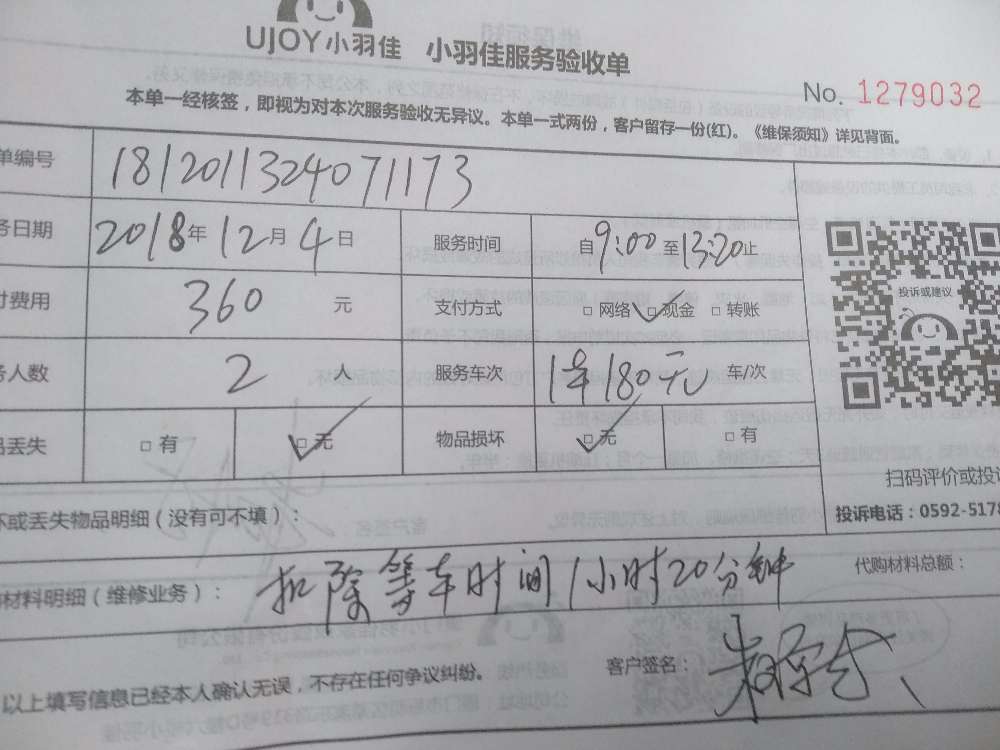 UJOY小羽佳 小羽佳服务验收单
No. 1279032
本单一经核签，即视为对本次服务验收无异议。本单一式两份，客户留存一份(红)。《维保须知》详见背面。
单编号 1812011324071173
务日期 2018年12月4日 服务时间 自9:00至13:20止
付费用 360 元 支付方式 □网络 ☑现金 □转账
务人数 2 人 服务车次 1车180元 车/次
品丢失 □有 ☑无 物品损坏 ☑无 □有
投诉或建议
扫码评价或投诉
投诉电话：0592-5178
坏或丢失物品明细（没有可不填）：
材料明细（维修业务）： 扣除等车时间1小时20分钟 代购材料总额：
以上填写信息已经本人确认无误，不存在任何争议纠纷。 客户签名：